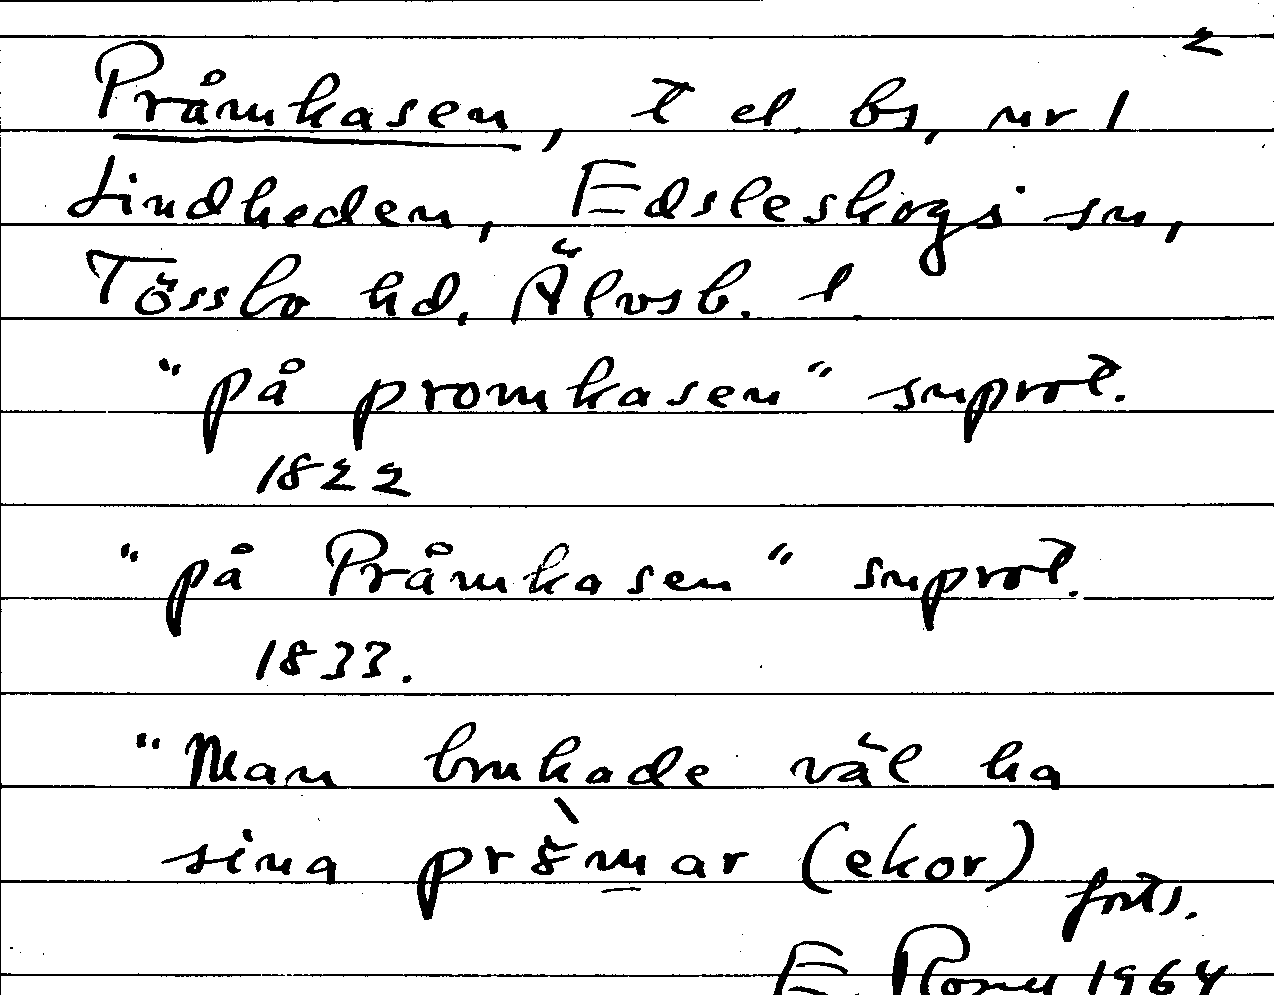 2
Pråmkasen, t el. bs, nr 1
Lindheden, Edsleskogs sn,
Tössbo hd, Älvsb. l.
"på promkasen" snprot.
1822
"på Pråmkasen" snprot.
1833.
"Man brukade väl ha
sina pròmar (ekor)
forts.
E. 1964